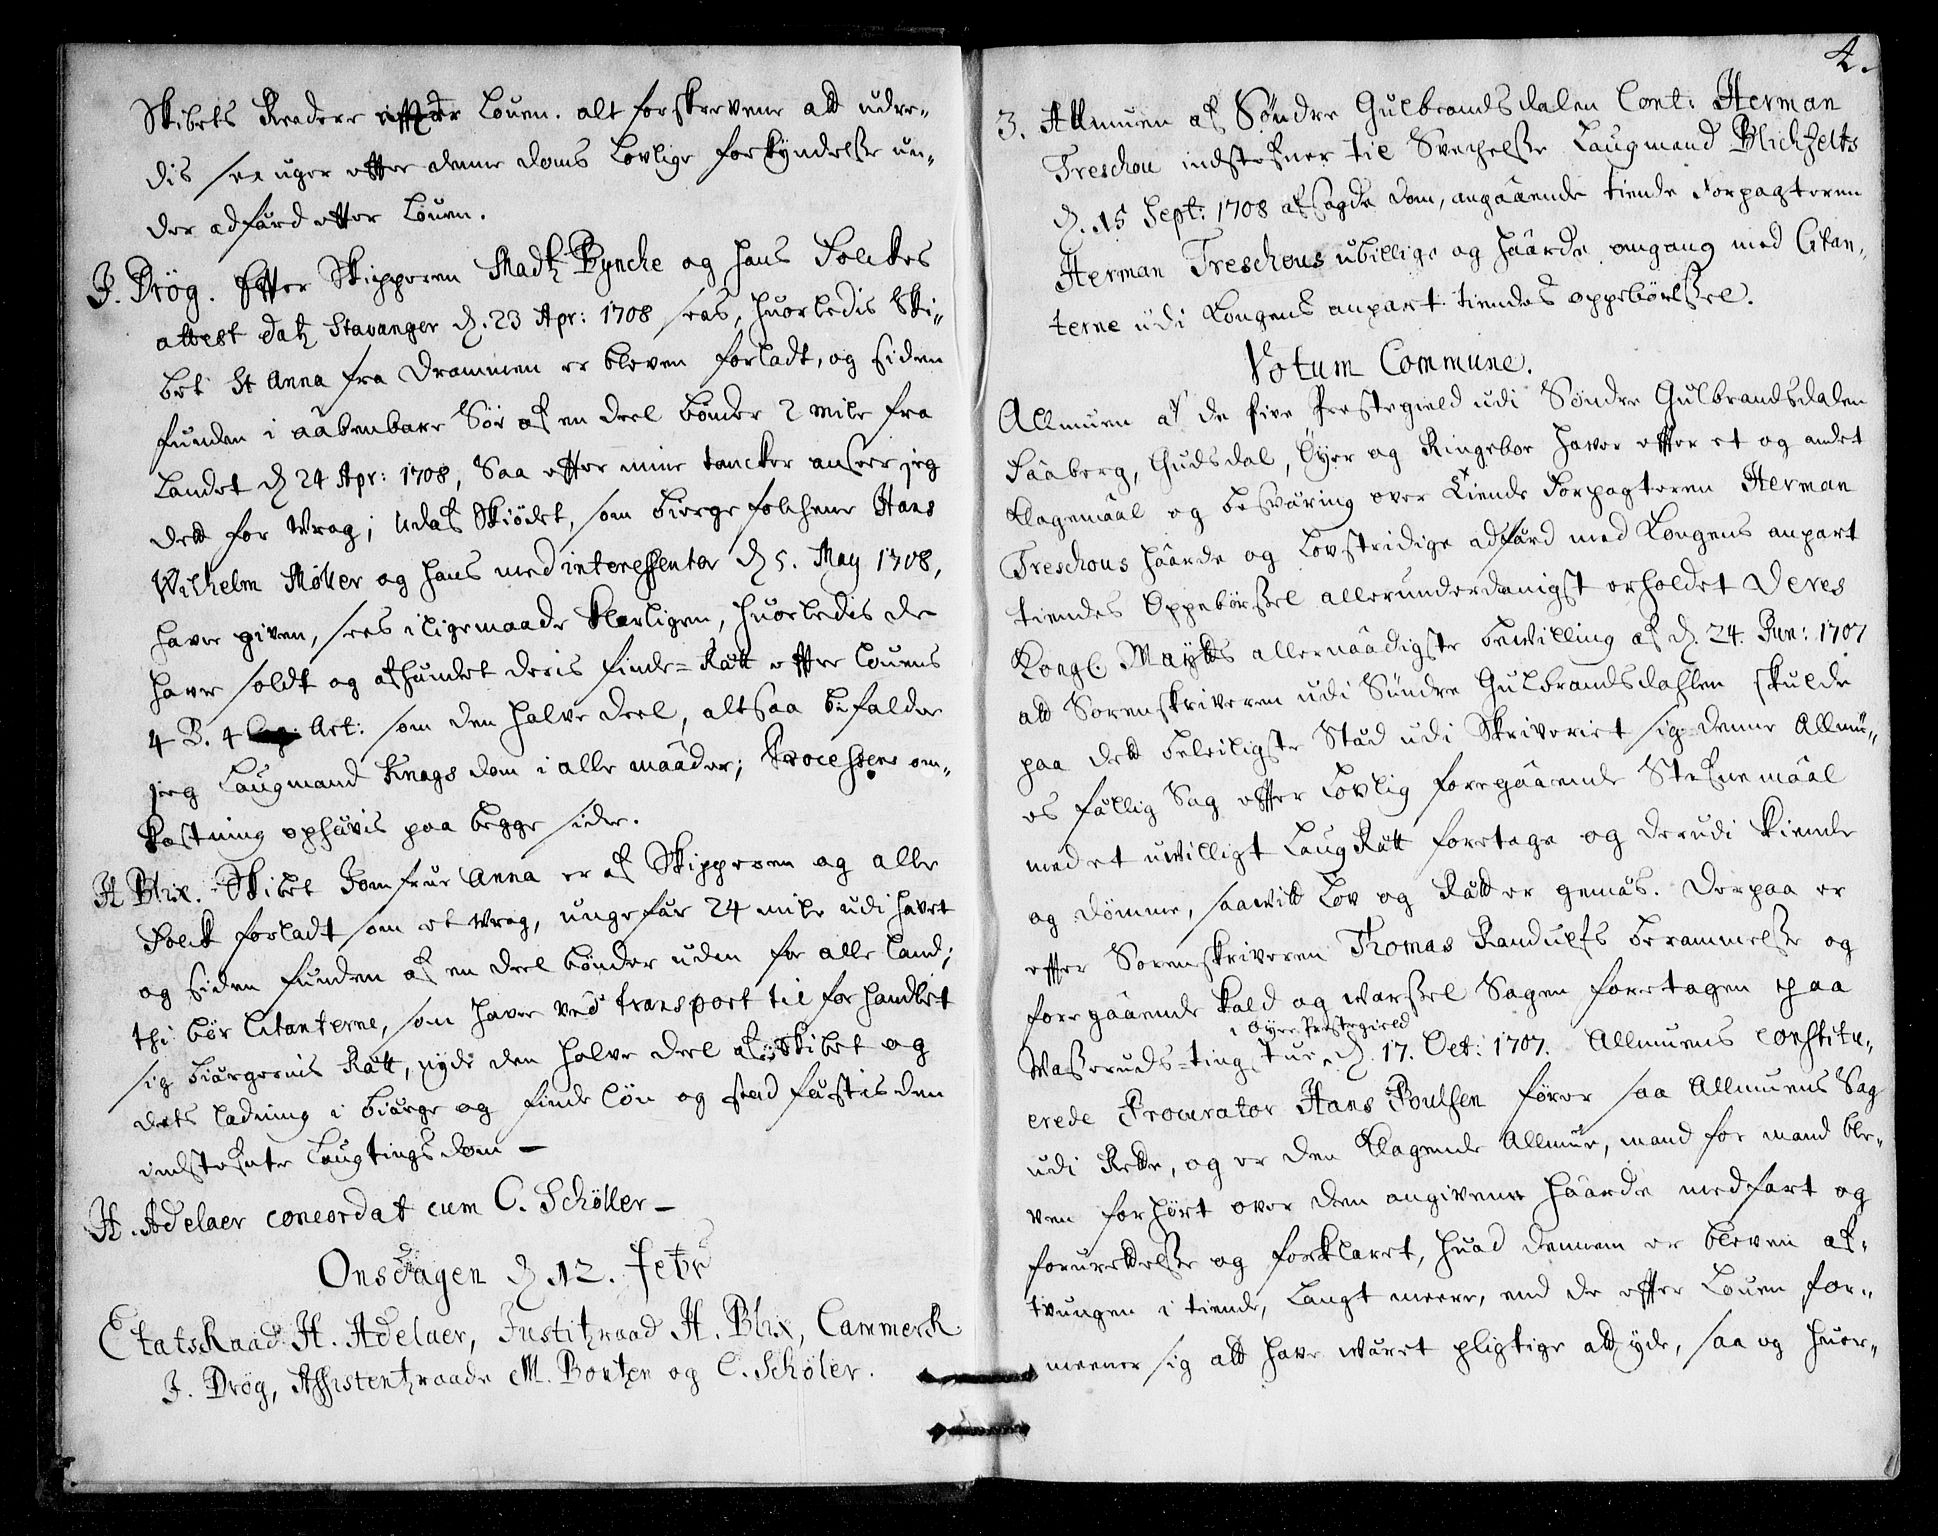 Skibets Reedere efter Louen. alt forskrevene att udre-
dis sex uger efter denne doms Lovlige forkyndelse un-
der adfärd efter Louen.
J. Drög. Efter Skipperen Madtz Byncke og hans Folckes
attest datz Stavanger d. 23 Apr: 1708 sees, huorledis Ski-
bet St Anna fra Drammen er bleven forladt, og siden
funden i aabenbare Söe af en deel bönder 2 mile fra
Landet d 24 Apr: 1708, Saa efter mine tancker anseer jeg
dett for Wrag; Udaf Skiödet, som biergefolchene Hans
Wilhelm Møller og hans med interessenter d 5. May 1708,
haver given, sees i ligemaade klarligen, huorledis de
haver soldt og afhändet deris finde-Rätt efter Louens
4 B. 4 Cap: Art: som den halve deel, altsaa befalder
jeg Laugmand Knags dom i alle maader; Processens om-
kostning ophävis paa begge sider.
H Blix. Skibet Jomfrue Anna er af Skipperen og alle
Folck forladt som et wrag, ungefär 24 mile udi havet
og siden funden af en deel bönder uden for alle land;
thi bör Citanterne, som haver ved transport til forhandlet
sig biärgernis Rätt, nyde den halve deel af Skibet og
dets ladning i biärge og finde lön og stadfästis den
indstefnte Laugtings dom –
H. Adelaer concordat cum C. Schøller –
Onsdagen d 12. Febr
EtatsRaad H. Adelaer, Justitzraad H. Blix, Cammerr
J. Drög, Assistentzraade M. Bortzen og C. Schøler.
4.
3. Allmuen af Söndre Gulbrandsdalen Cont: Herman
Treschou indstefner til Svechelsse Laugmand Blichfelts
d. 15 Sept: 1708 afsagde dom, angaaende tiende Forpagteren
Herman Treschous ubillige og haarde omgang med Citan-
terne udi Kongens anpart tiendes oppebörelssel.
Votum Commune.
Allmuen af de five Prestegield udi Söndre Gulbrandsdalen
Faaberg, Gudsdal, Öyer og Ringeboe haver efter et og andet
klagemaal og besväring over Tiende Forpagteren Herman
Treschous haarde og Lovstridige adfärd med Kongens anpart
tiendes Oppebörssel allerunderdanigst erholdet Deres
Kongl. Maytts allernaadigste bewilling af d. 24. Jun: 1707
att Sorenskriveren udi Söndre Gulbrandsdahlen skulde
paa dett beleiligste Städ udi Skriveriet sig denne Allmu-
es fällig Sag efter Lovlig foregaaende Stefnemaal
med et uvilligt LaugRätt foretage og derudi kiende
og dömme, saavitt Lov og Rätt er gemäs. Derpaa er
efter Sorenskriveren Thomas Randulfs berammelsse og
foregaaende kald og warssel Sagen foretagen paa
i Öyer Prestegield
Wasseruds-ting stue, d. 17. Oct: 1707. Allmuens constitu-
erede Procurator Hans Poulsen förer saa Allmuens Sag
udi Rette, og er den klagende Allmue, mand for mand ble-
ven forhört over den angivene haarde medfart og
forurettelsse og forklaret, huad dennem er bleven af-
tvungen i tiende, Langt meere, end de efter Louen for-
meener sig att have wäret pligtige att yde, saa og huor-